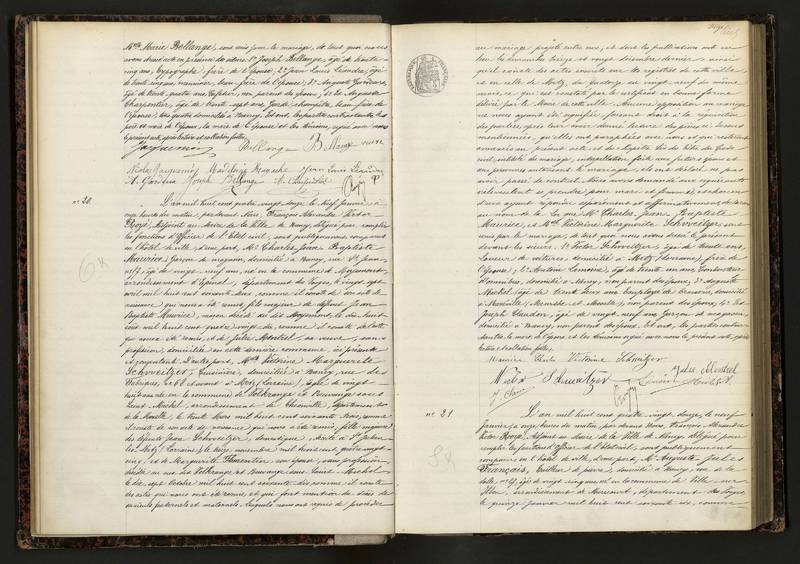 Mlle Marie Bellange, sont unis par le mariage, de tout quoi nous
avons dressé acte en présence des sieurs 1° Joseph Bellange, âgé de trente
cinq ans, typographe, frère de l'épouse; 2° Jean Louis Léandre, âgé
de trente cinq ans, beau-frère de l'épouse; 3° Auguste Jardin,
âgé de trente quatre ans, non parent des époux, et 4° Auguste
Charpentier, âgé de trente sept ans, garde champêtre, beau-frère de
l'épouse, tous quatre domiciliés à Nancy. Et ont, les parties contractantes, les
père et mère de l'époux, la mère de l'épouse et les témoins, signé avec nous
le présent acte, après lecture et collation faites.
Jacquemin Bellange B Marie
Nicolas Jacquemin Jean Louis Léandre
A. Jardin Joseph Bellange A. Charpentier
n° 20.
L'an mil huit cent quatre vingt douze, le neuf Janvier, à
onze heures du matin, par devant Nous, François Alexandre Victor
adjoint au Maire de la Ville de Nancy, délégué pour remplir
les fonctions d'officier de l'état civil, sont publiquement comparus
en l'hôtel de ville, d'une part, Mr Charles Jean Baptiste
Maurice, garçon de magasin, domicilié à Nancy, rue St Jean,
âgé de vingt neuf ans, né en la commune de
arrondissement d'Epinal, département des Vosges, le vingt sept
avril mil huit cent soixante deux, comme il conste de son acte de
naissance qui nous a été remis, fils majeur de défunt Jean
Baptiste Maurice, maçon, décédé le dix huit
août mil huit cent quatre vingt dix, comme il conste de l'acte
qui nous a été remis, et de Julie Montrel, sa veuve, sans
profession, domiciliée en cette dernière commune, ici présente
et consentante. D'autre part, Mlle Victorine Marguerite
Schveitzer, cuisinière, domiciliée à Nancy, rue des
n° 68 et avant à (Lorraine), âgée de vingt
huit ans, née en la commune de Volkrange et Beuvange sous
Saint Michel, arrondissement de Thionville, département
de la Moselle, le trente Mars mil huit cent soixante trois, comme
il conste de son acte de naissance qui nous a été remis, fille majeure
des défunts Jean Schveitzer, domestique, décédé à
(Lorraine), le treize novembre mil huit cent quatre vingt
et de Marguerite Florentin son épouse, sans profession,
décédée au dit Volkrange et Beuvange sous Saint Michel
le dix sept Octobre mil huit cent soixante dix, comme il conste
des actes qui nous ont été remis, et qui font mention des décès des
aïeuls paternels et maternels. Lesquels nous ont requis de procéder
au mariage projeté entre eux, et dont les publications ont eu
lieu les dimanches treize et vingt décembre dernier, ainsi
qu'il conste des actes inscrits sur les registres de cette ville,
et en ville de Metz, du quatorze au vingt neuf du même
mois, ce qui est constaté par le certificat en bonne forme
délivré par le Maire de cette ville. Aucune opposition au mariage
ne nous ayant été signifiée, faisant droit à la réquisition
des parties, après leur avoir donné lecture des pièces ci-dessus
mentionnées, qu'elles ont paraphées avec nous et qui resteront
annexées au présent acte, et du chapitre six du titre du Code
civil, intitulé du mariage, interpellation faite aux futurs époux et
aux personnes autorisant le mariage, ils ont déclaré ne pas
avoir passé de contrat. Nous avons demandé aux requérants
s'ils veulent se prendre pour mari et femme; et chacun
d'eux ayant répondu séparément et affirmativement, déclarons
au nom de la loi que Mr Charles Jean Baptiste
Maurice, et Mlle Victorine Marguerite Schveitzer, sont
unis par le mariage, de tout quoi nous avons dressé le présent acte
devant les sieurs: 1° Victor Schveitzer, âgé de trente ans,
loueur de voitures, domicilié à Metz (Lorraine), frère de
l'épouse; 2° Antoine Lemoine, âgé de trente un ans, conducteur
d'omnibus, domicilié à Nancy, non parent des époux; 3° Auguste
Michel, âgé de trente deux ans, employé de domicilié
à (Meurthe et Moselle), non parent des époux; 4° et
Joseph Claudon, âgé de vingt neuf ans, garçon de magasin,
domicilié à Nancy, non parent des époux. Et ont, les parties contrac-
tantes, la mère de l'époux et les témoins signé avec nous le présent acte, après
lecture et collation faites.
Maurice Charles Victorine Schveitzer
Julie Montrel
Victor Schweitzer Lemoine Michel A.
n° 21.
L'an mil huit cent quatre vingt douze, le neuf
Janvier, à onze heures du matin, par devant Nous, François Alexandre
Victor adjoint au Maire de la Ville de Nancy, délégué pour
remplir les fonctions d'officier de l'état civil, sont publiquement
comparus en l'hôtel de ville, d'une part, Mr Auguste Jules
Français, tailleur de pierre, domicilié à Nancy, rue de la
âgé de vingt cinq ans, né en la commune de Ville sur
Illon, arrondissement de Mirecourt, département des Vosges,
le quinze janvier mil huit cent soixante six, comme